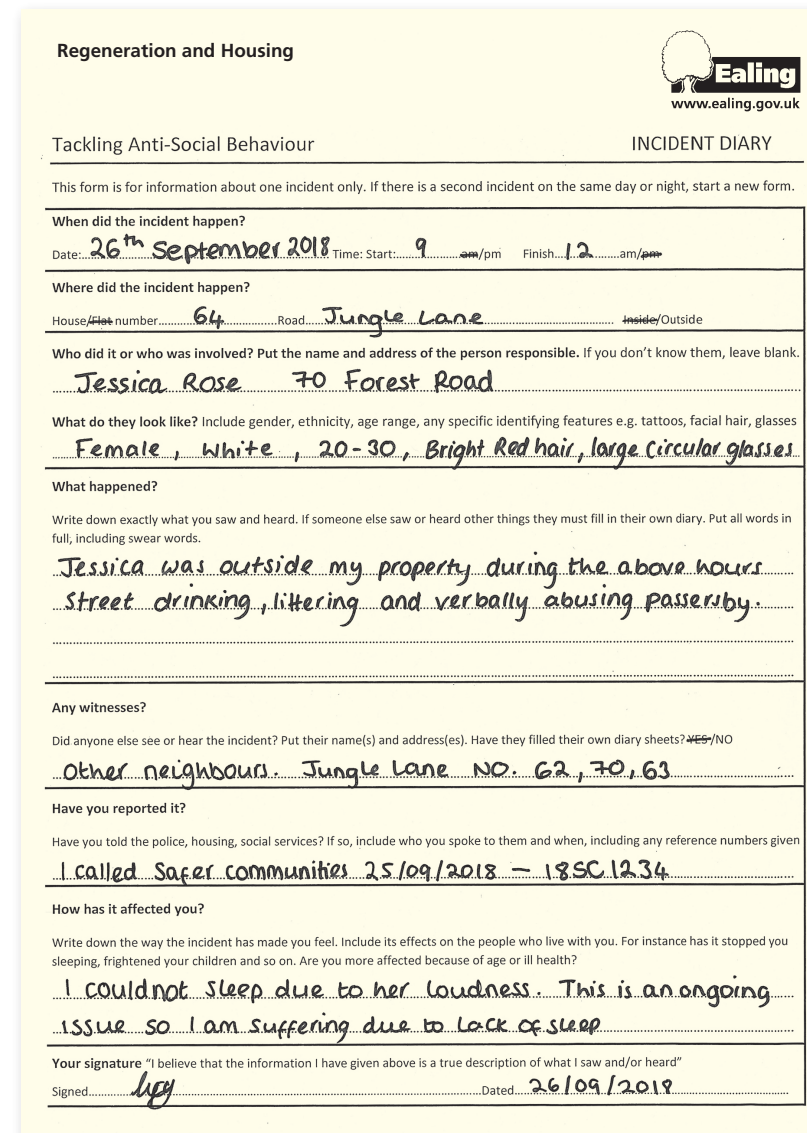 Regeneration and Housing
Ealing
www.ealing.gov.uk
Tackling Anti-Social Behaviour INCIDENT DIARY
This form is for information about one incident only. If there is a second incident on the same day or night, start a new form.
When did the incident happen?
Date: 26th September 2018 Time: Start: 9 am/pm Finish 12 am/pm
Where did the incident happen?
House/Flat number 64 Road Jungle Lane Inside/Outside
Who did it or who was involved? Put the name and address of the person responsible. If you don't know them, leave blank.
Jessica Rose 70 Forest Road
What do they look like? Include gender, ethnicity, age range, any specific identifying features e.g. tattoos, facial hair, glasses
Female, white, 20-30, Bright Red hair, large Circular glasses
What happened?
Write down exactly what you saw and heard. If someone else saw or heard other things they must fill in their own diary. Put all words in
full, including swear words.
Jessica was outside my property during the above hours
Street drinking, littering and verbally abusing passersby.
Any witnesses?
Did anyone else see or hear the incident? Put their name(s) and address(es). Have they filled their own diary sheets? YES/NO
Other neighbours. Jungle Lane NO. 62, 70, 63
Have you reported it?
Have you told the police, housing, social services? If so, include who you spoke to them and when, including any reference numbers given
I called Safer communities 25/09/2018 - 18SC1234
How has it affected you?
Write down the way the incident has made you feel. Include its effects on the people who live with you. For instance has it stopped you
sleeping, frightened your children and so on. Are you more affected because of age or ill health?
I couldnot sleep due to her loudness. This is an ongoing
issue so I am suffering due to lack of sleep
Your signature "I believe that the information I have given above is a true description of what I saw and/or heard"
Signed Dated 26/09/2018